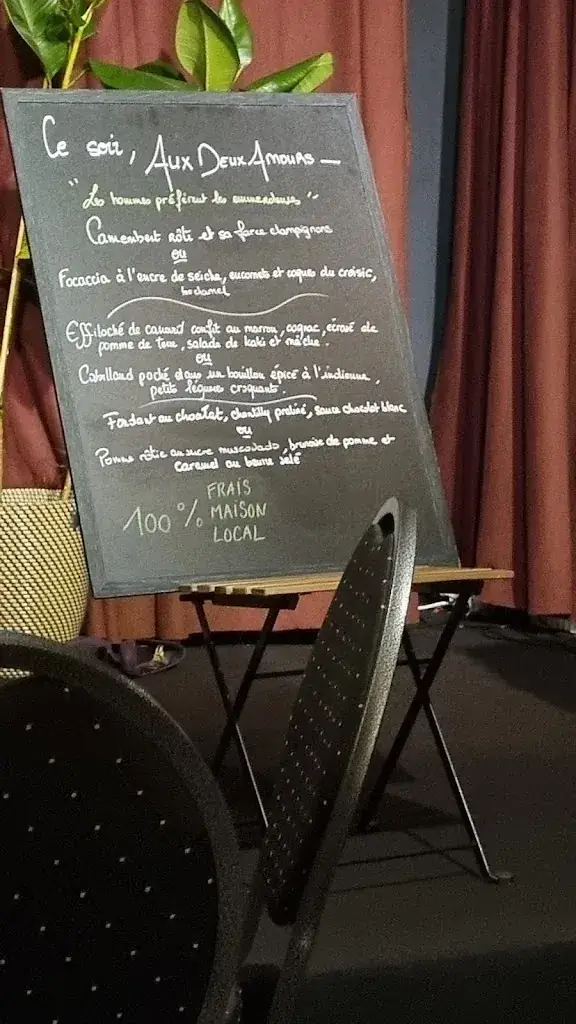 Ce soir, AUX DEUX AMOURS —
"Les hommes préfèrent les emmerdeuses" -
Camembert rôti et sa farce champignons
ou
Focaccia à l'encre de seiche, et coques du croisic,
Effiloché de canard confit au marron, cognac, écrasé de
pomme de terre, salade de kaki et mâche.
ou
Cabillaud poché dans un bouillon épicé à l'indienne,
petits légumes croquants.
Fondant au chocolat, chantilly praliné, sauce chocolat blanc
ou
Pomme rôtie au sucre muscovado, brunoise de pomme et
caramel au beurre salé
100 % FRAIS
MAISON
LOCAL